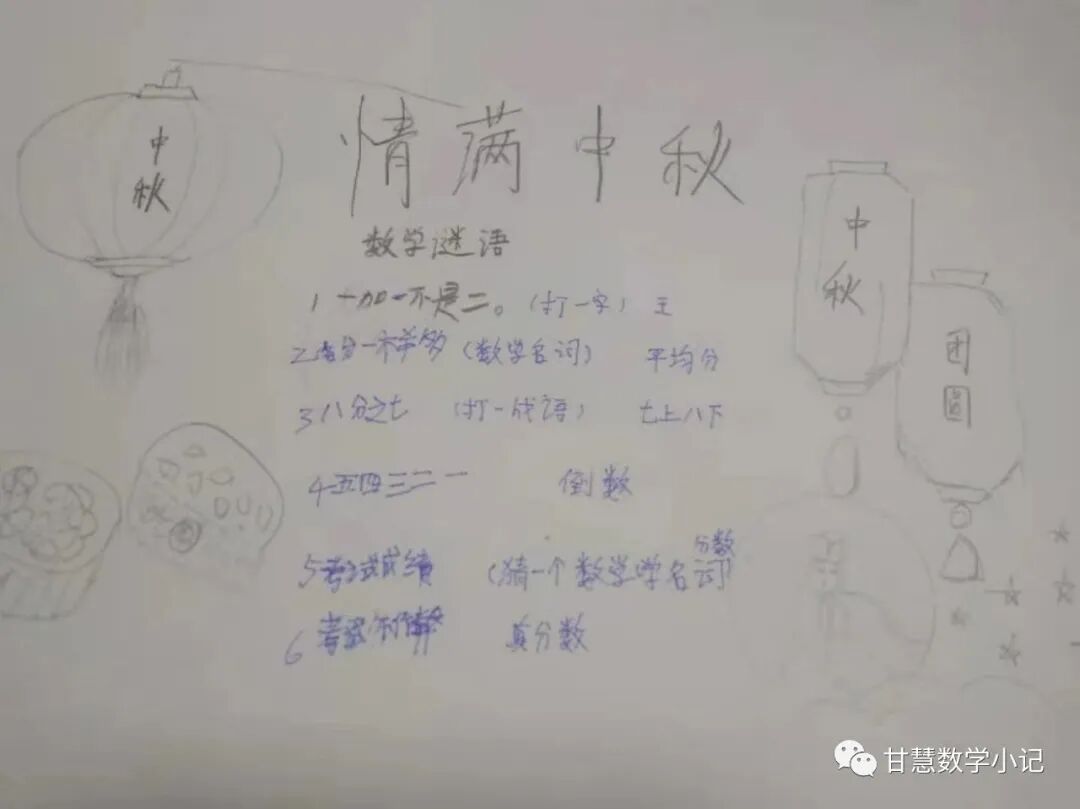 情满中秋
中秋
中秋
团圆
数学谜语
1 一加一不是二。(打一字) 王
2 一样多 (数学名词) 平均分
3 八分之七 (打一成语) 七上八下
4 五四三二一 倒数
5 考试成绩 (猜一个数学学名词) 分数
6 考试不作弊 真分数
甘慧数学小记